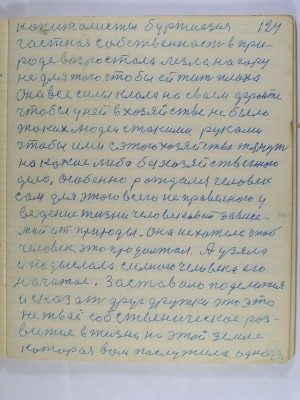 капиталисты буржуазия 124
частная собственность в при-
роде возростала лезла на гору
не для того чтобы ей жит плохо
Она все силы клала на своем фронте
чтобы у ней в хозяйстве не было
таких людей с такими руками
чтобы или с этого хозяйства тянут
на какие либо безхозяйственного
дело, Особенно рождался человек
сам для этого всего не правельного у
ведение жизни человеческой зависе-
мой от природы. Она не хотела чтоб
человек это продолжал. А узяла
и подыслала сильного человека его
начатое. Заставило поделится
и сказат друг дружки что это
не твае собственическое роз-
витие в жизни на этой земле
которая вам послужила однаго